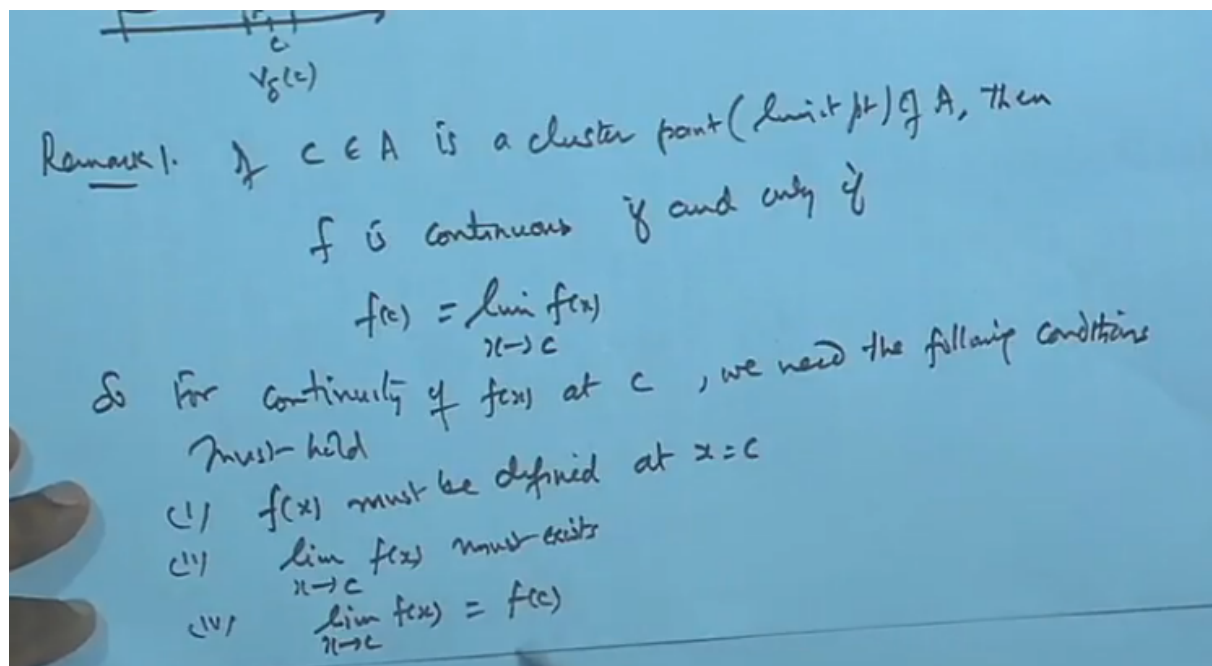 c
V_δ(c)
Remark 1. If c ∈ A is a cluster point (limit pt) of A, then
f is continuous if and only if
f(c) = lim f(x)
x→c
So For continuity of f(x) at c, we need the following conditions
must hold
(i) f(x) must be defined at x=c
(ii) lim f(x) must exists
x→c
(iv) lim f(x) = f(c)
x→c